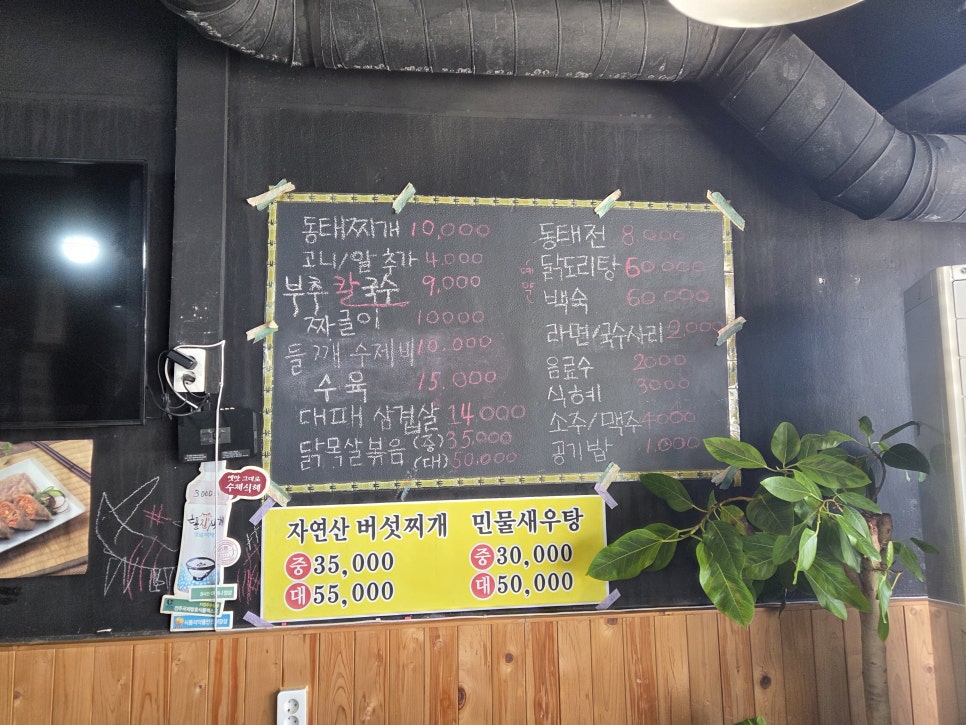 동태찌개 10,000
고니/알 추가 4.000
부추 칼국수 9,000
짜글이 10000
들깨 수제비 10.000
수육 15.000
대패 삼겹살 14000
닭목살볶음 (중) 35.000
(대) 50.000
동태전 8000
닭도리탕 60.000
백숙 60.000
라면/국수사리 2.000
음료수 2000
식혜 3000
소주/맥주 4000
공기밥 1.000
자연산 버섯찌개
중 35,000
대 55,000
민물새우탕
중 30,000
대 50,000
옛맛 그대로
수제식혜
3000